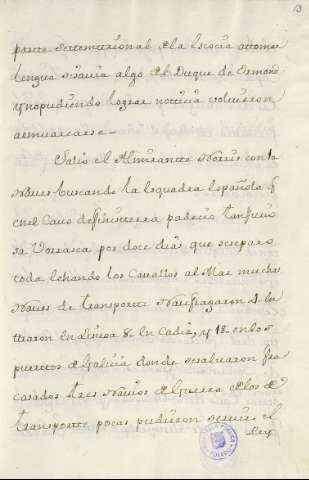 13
parte Setemtrional de la Escocia atomar
lengua y savia algo del Duque de Ormond
y no pudiendo lograr noticia volvieron
aemvarcarse-
Salio el Almirantte Norris con 10
Naves buscando la Esquadra española q
en el Cavo definisterra padecio tan furio
sa Vorrasca por doce dias que se separo
toda hechando los Cavallos al Mar muchas
Naves de transporte Naufragaron
en Cadiz, y 18 en los
puertos de Galicia donde se salvaron fra
casados tres Navios de Guerra de los de
transporte pocas pudieron servir el
Rey